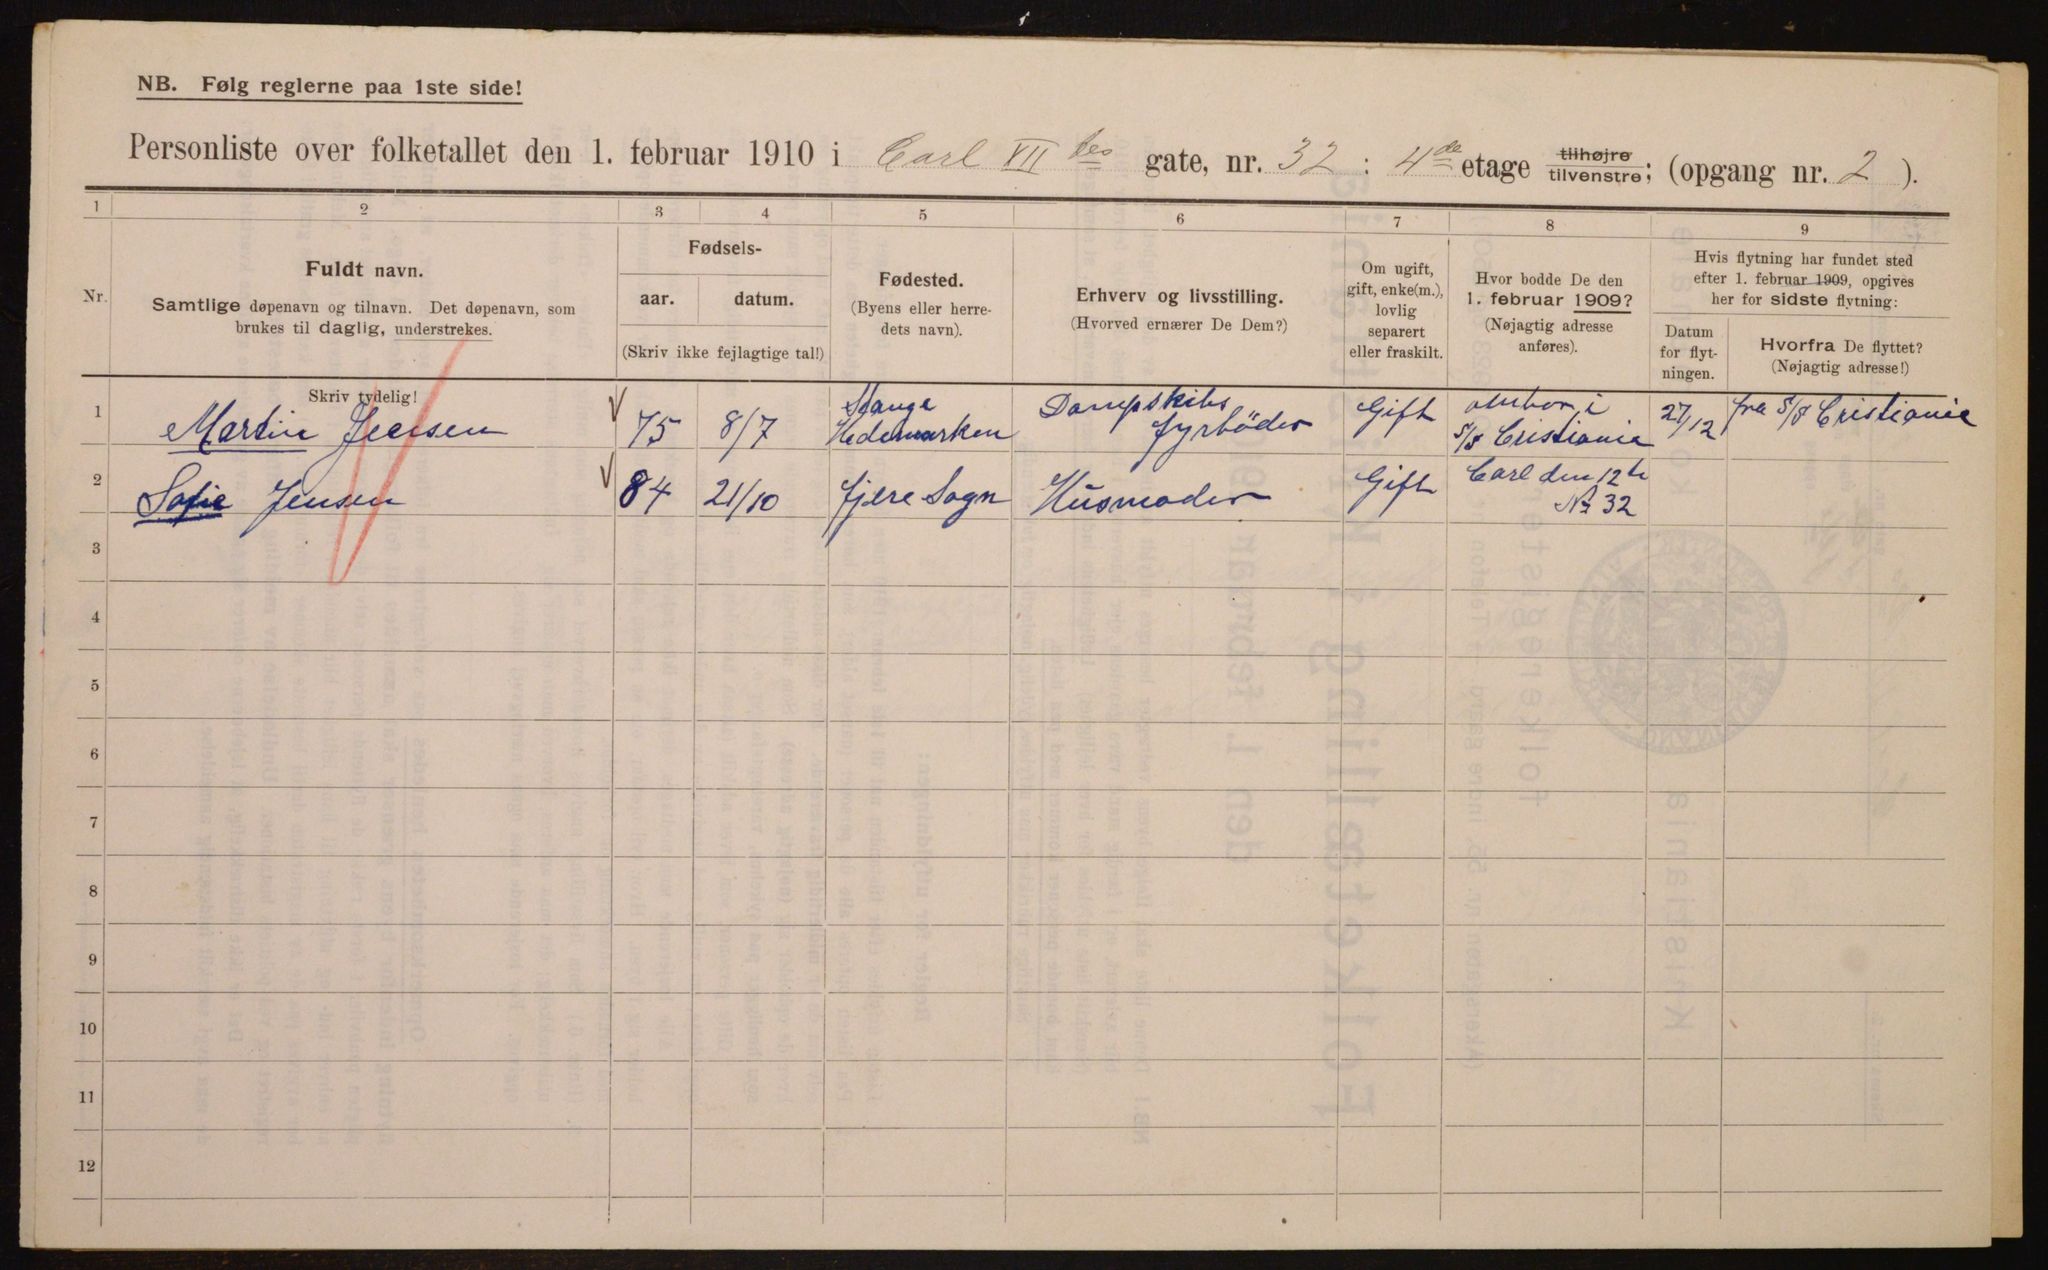 NB. Følg reglerne paa 1ste side!
Personliste over folketallet den 1. februar 1910 i Carl XII tes gate, nr. 32 : 4de etage tilhøjre tilvenstre; (opgang nr. 2 ).
1 2 3 4 5 6 7 8 9
Nr.
Fuldt navn.
Samtlige døpenavn og tilnavn. Det døpenavn, som
brukes til daglig, understrekes.
Skriv tydelig!
Fødsels-
aar. datum.
(Skriv ikke fejlagtige tal!)
Fødested.
(Byens eller herre-
dets navn).
Erhverv og livsstilling.
(Hvorved ernærer De Dem?)
Om ugift,
gift, enke(m.),
lovlig
separert
eller fraskilt.
Hvor bodde De den
1. februar 1909?
(Nøjagtig adresse
anføres).
Hvis flytning har fundet sted
efter 1. februar 1909, opgives
her for sidste flytning:
Datum
for flyt-
ningen.
Hvorfra De flyttet?
(Nøjagtig adresse!)
1 Martin Jensen 75 8/7 Stange Hedemarken Dampskibs fyrböder Gift ombor i S/S Cristiania 27/12 fra S/S Cristiania
2 Sofie Jensen 84 21/10 fjære Sogn Husmoder Gift Carl den 12te No 32
3
4
5
6
7
8
9
10
11
12